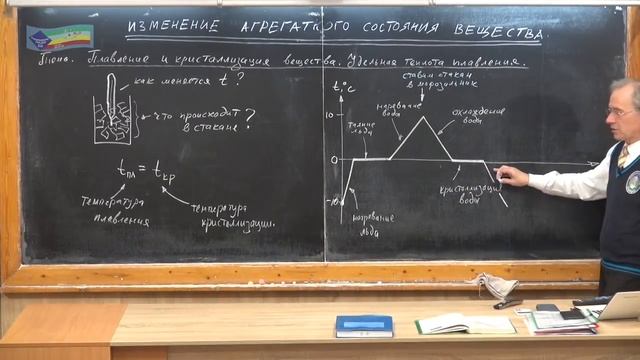 ИЗМЕНЕНИЕ АГРЕГАТНОГО СОСТОЯНИЯ ВЕЩЕСТВА.
Плавление и кристаллизация вещества. Удельная теплота плавления.
как меняется t?
что происходит в стакане?
tпл = tкр
температура плавления
температура кристаллизации.
ставим стакан
в морозильник
t,°C
10
0
-10
нагревание
льда
таяние
льда
нагревание
вода
охлаждение
вода
кристаллизация
вода